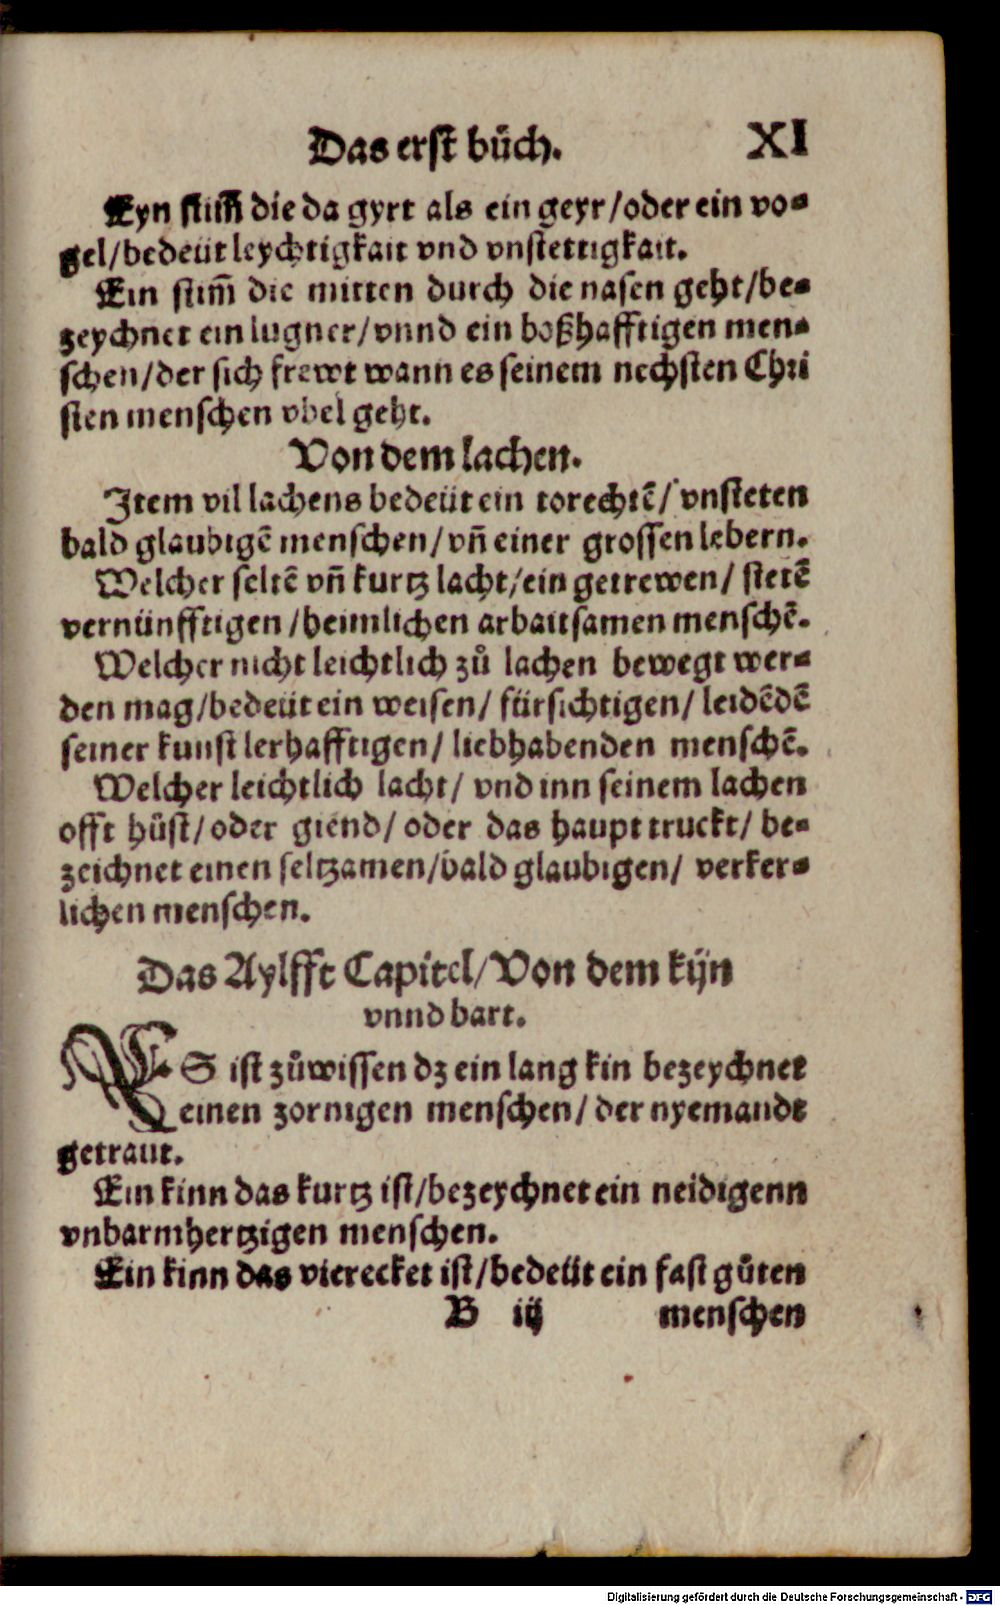 Das erst bůch. XI
Eyn stim̃ die da gyrt als ein geyr/oder ein vo-
gel/bedeüt leychtigkait vnd vnstettigkait.
Ein stim̃ die mitten durch die nasen geht/be-
zeychnet ein lugner/vnnd ein boßhafftigen men-
schen/der sich frewt wann es seinem nechsten Chri
sten menschen vbel geht.
Von dem lachen.
Item vil lachens bedeüt ein torechtẽ/ vnsteten
bald glaubigẽ menschen/vñ einer grossen lebern.
Welcher seltẽ vñ kurtz lacht/ein getrewen/ stetẽ
vernünfftigen/heimlichen arbaitsamen menschẽ.
Welcher nicht leichtlich zů lachen bewegt wer-
den mag/bedeüt ein weisen/ fürsichtigen/ leidẽdẽ
seiner kunst lerhafftigen/ liebhabenden menschẽ.
Welcher leichtlich lacht/ vnd inn seinem lachen
offt hůst/oder giend/oder das haupt truckt/ be-
zeichnet einen seltzamen/bald glaubigen/ verker-
lichen menschen.
Das Aylfft Capitel/Von dem kijn
vnnd bart.
ES ist zůwissen dz ein lang kin bezeychnet
einen zornigen menschen/ der nyemandt
getraut.
Ein kinn das kurtz ist/bezeychnet ein neidigenn
vnbarmhertzigen menschen.
Ein kinn das vierecket ist/bedeüt ein fast gůten
B iij menschen
Digitalisierung gefördert durch die Deutsche Forschungsgemeinschaft - DFG